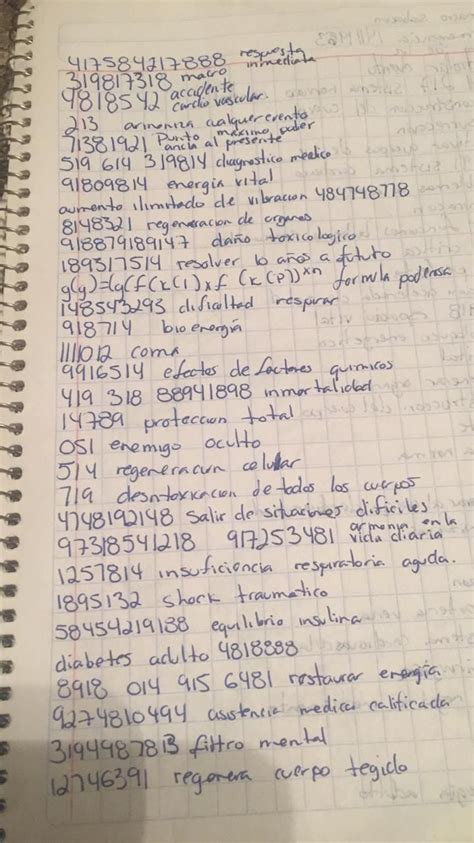 417584217888 respuesta inmediata
319817318 macro
9818542 accidente
213 armoniza cualquer evento
71381921 Punto maximo poder
ancla al presente
519 614 319814 diagnostico medico
91809814 energia vital
aumento ilimitado de vibracion 484748778
8148321 regeneracion de organos
918879189147 daño toxicologico
189317514 resolver 10 años a futuro
formula poderosa
148543293 dificultad respirar
918714 bioenergia
1111012 coma
9916514 efectos de factores quimicos
419 318 88941898 inmortalidad
14789 proteccion total
051 enemigo oculto
514 regeneracion celular
719 desintoxicacion de todos los cuerpos
4748192148 Salir de situaciones dificiles
97318541218 917253481 armonia en la vida diaria
1257814 insuficiencia respiratoria aguda.
1895132 shock traumatico
58454219188 equilibrio insulina
diabetes adulto 4818888
8918 014 915 6481 restaurar energia
9274810494 asistencia medica calificada
filtro mental
12746391 regenera cuerpo tegido